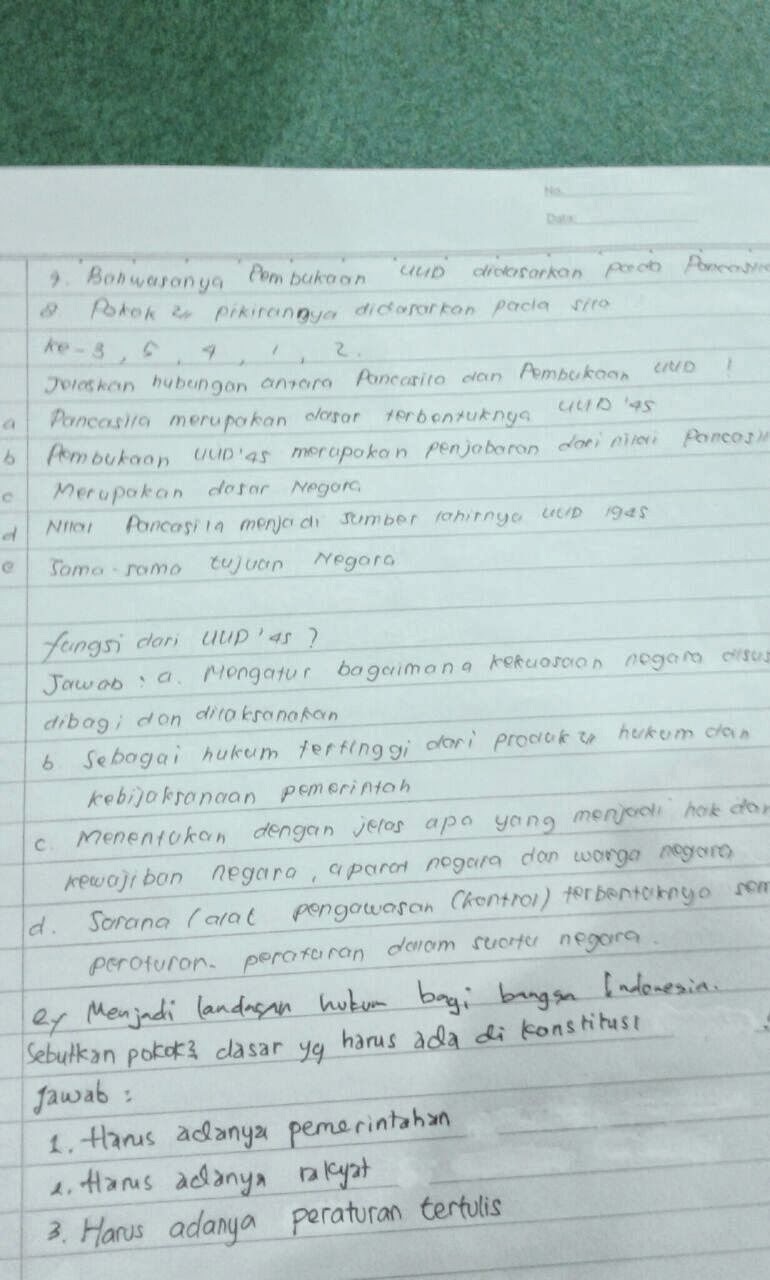 No.
Date:
9. Bahwasanya Pembukaan UUD didasarkan pada Pancasila
8 Pokok2 pikirangya didasarkan pada sila
ke-3, 5, 4, 1, 2.
Jelaskan hubungan antara Pancasila dan Pembukaan UUD !
a Pancasila merupakan dasar terbentuknya UUD '45
b Pembukaan UUD'45 merupakan penjabaran dari nilai Pancasil
c Merupakan dasar Negara
d Nilai Pancasila menjadi sumber lahirnya UUD 1945
e Sama-sama tujuan Negara
fungsi dari UUD '45 ?
Jawab : a. Mengatur bagaimana kekuasaan negara disus
dibagi dan dilaksanakan
b Sebagai hukum tertinggi dari produk2 hukum dan
kebijaksanaan pemerintah
c. Menentukan dengan jelas apa yang menjadi hak dan
kewajiban negara, aparat negara dan warga negara
d. Sarana / alat pengawasan (kontrol) terbentuknya sem
peraturan-peraturan dalam suatu negara.
e, Menjadi landasan hukum bagi bangsa Indonesia.
Sebutkan pokok2 dasar yg harus ada di konstitusi
Jawab :
1. Harus adanya pemerintahan
2. Harus adanya rakyat
3. Harus adanya peraturan tertulis